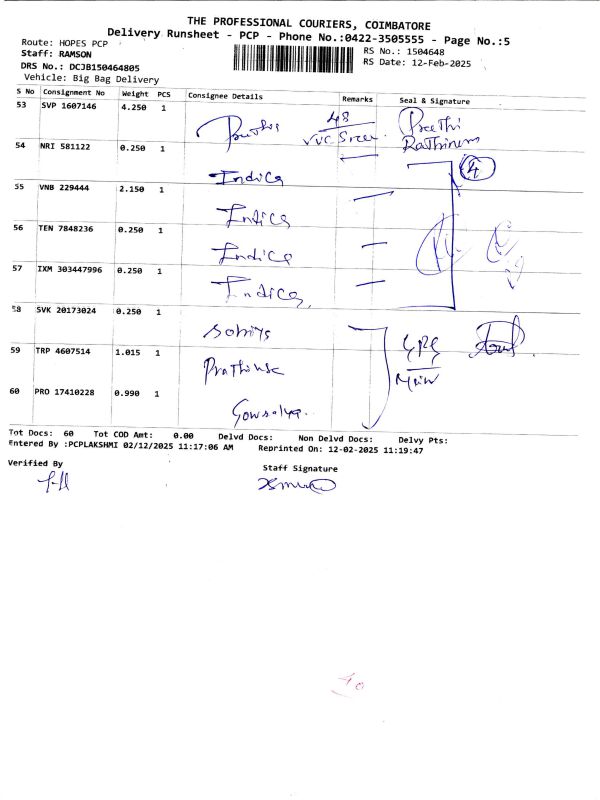 THE PROFESSIONAL COURIERS, COIMBATORE
Delivery Runsheet - PCP - Phone No.:0422-3505555 - Page No.:5
Route: HOPES PCP
RS No.: 1504648
Staff: RAMSON
RS Date: 12-Feb-2025
DRS No.: DCJB150464805
Vehicle: Big Bag Delivery
S No Consignment No Weight PCS Consignee Details Remarks Seal & Signature
53 SVP 1607146 4.250 1 48 Preethi
Rathinam
54 NRI 581122 0.250 1 Indica 4
55 VNB 229444 2.150 1 Indica
56 TEN 7848236 0.250 1 Indica
57 IXM 303447996 0.250 1 Indica
58 SVK 20173024 0.250 1
59 TRP 4607514 1.015 1
60 PRO 17410228 0.990 1 Gowsalya.
Tot Docs: 60 Tot COD Amt: 0.00 Delvd Docs: Non Delvd Docs: Delvy Pts:
Entered By :PCPLAKSHMI 02/12/2025 11:17:06 AM Reprinted On: 12-02-2025 11:19:47
Verified By
Staff Signature